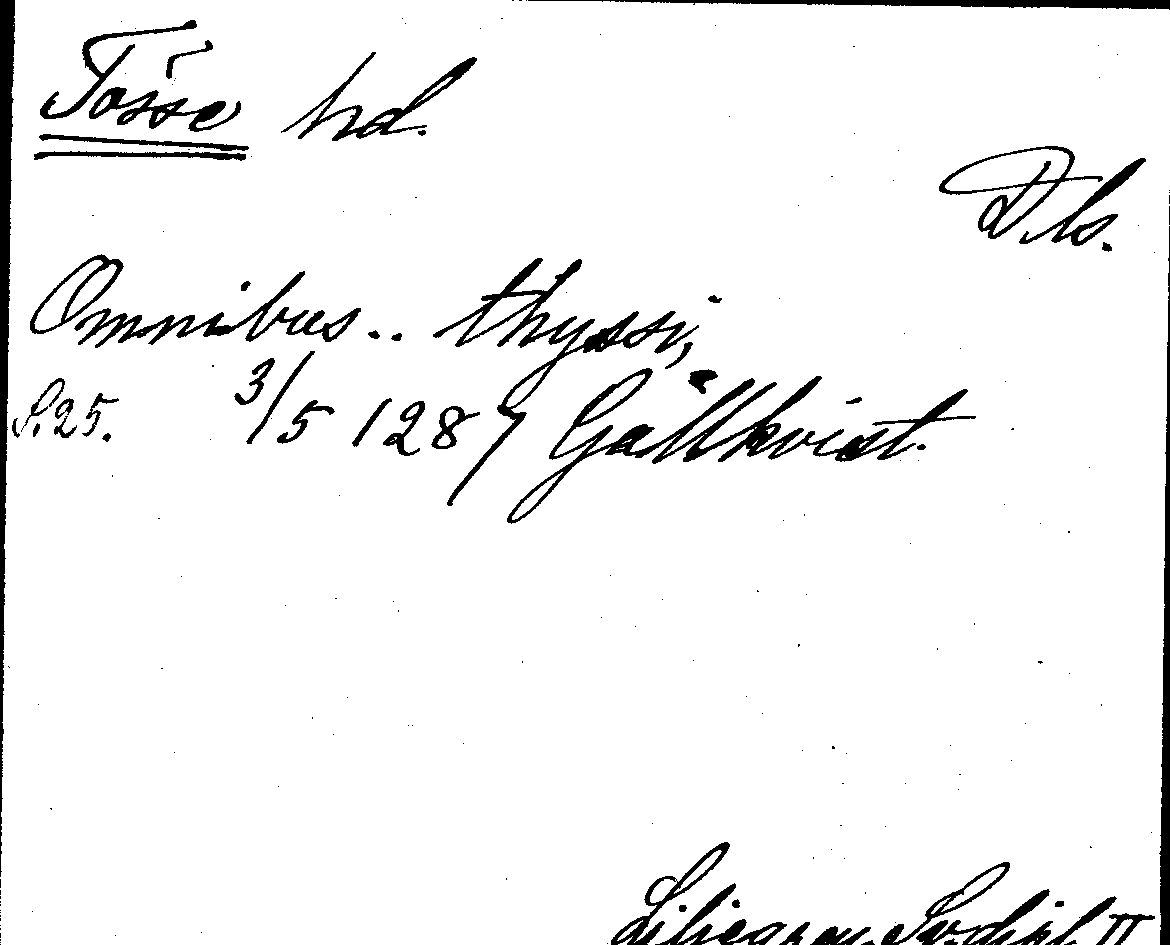 Tösse hd.
Dls.
Omnibus.. thyssi,
S.25. 3/5 1287 Gällkvist.
Liljegren, Sv. dipl. II